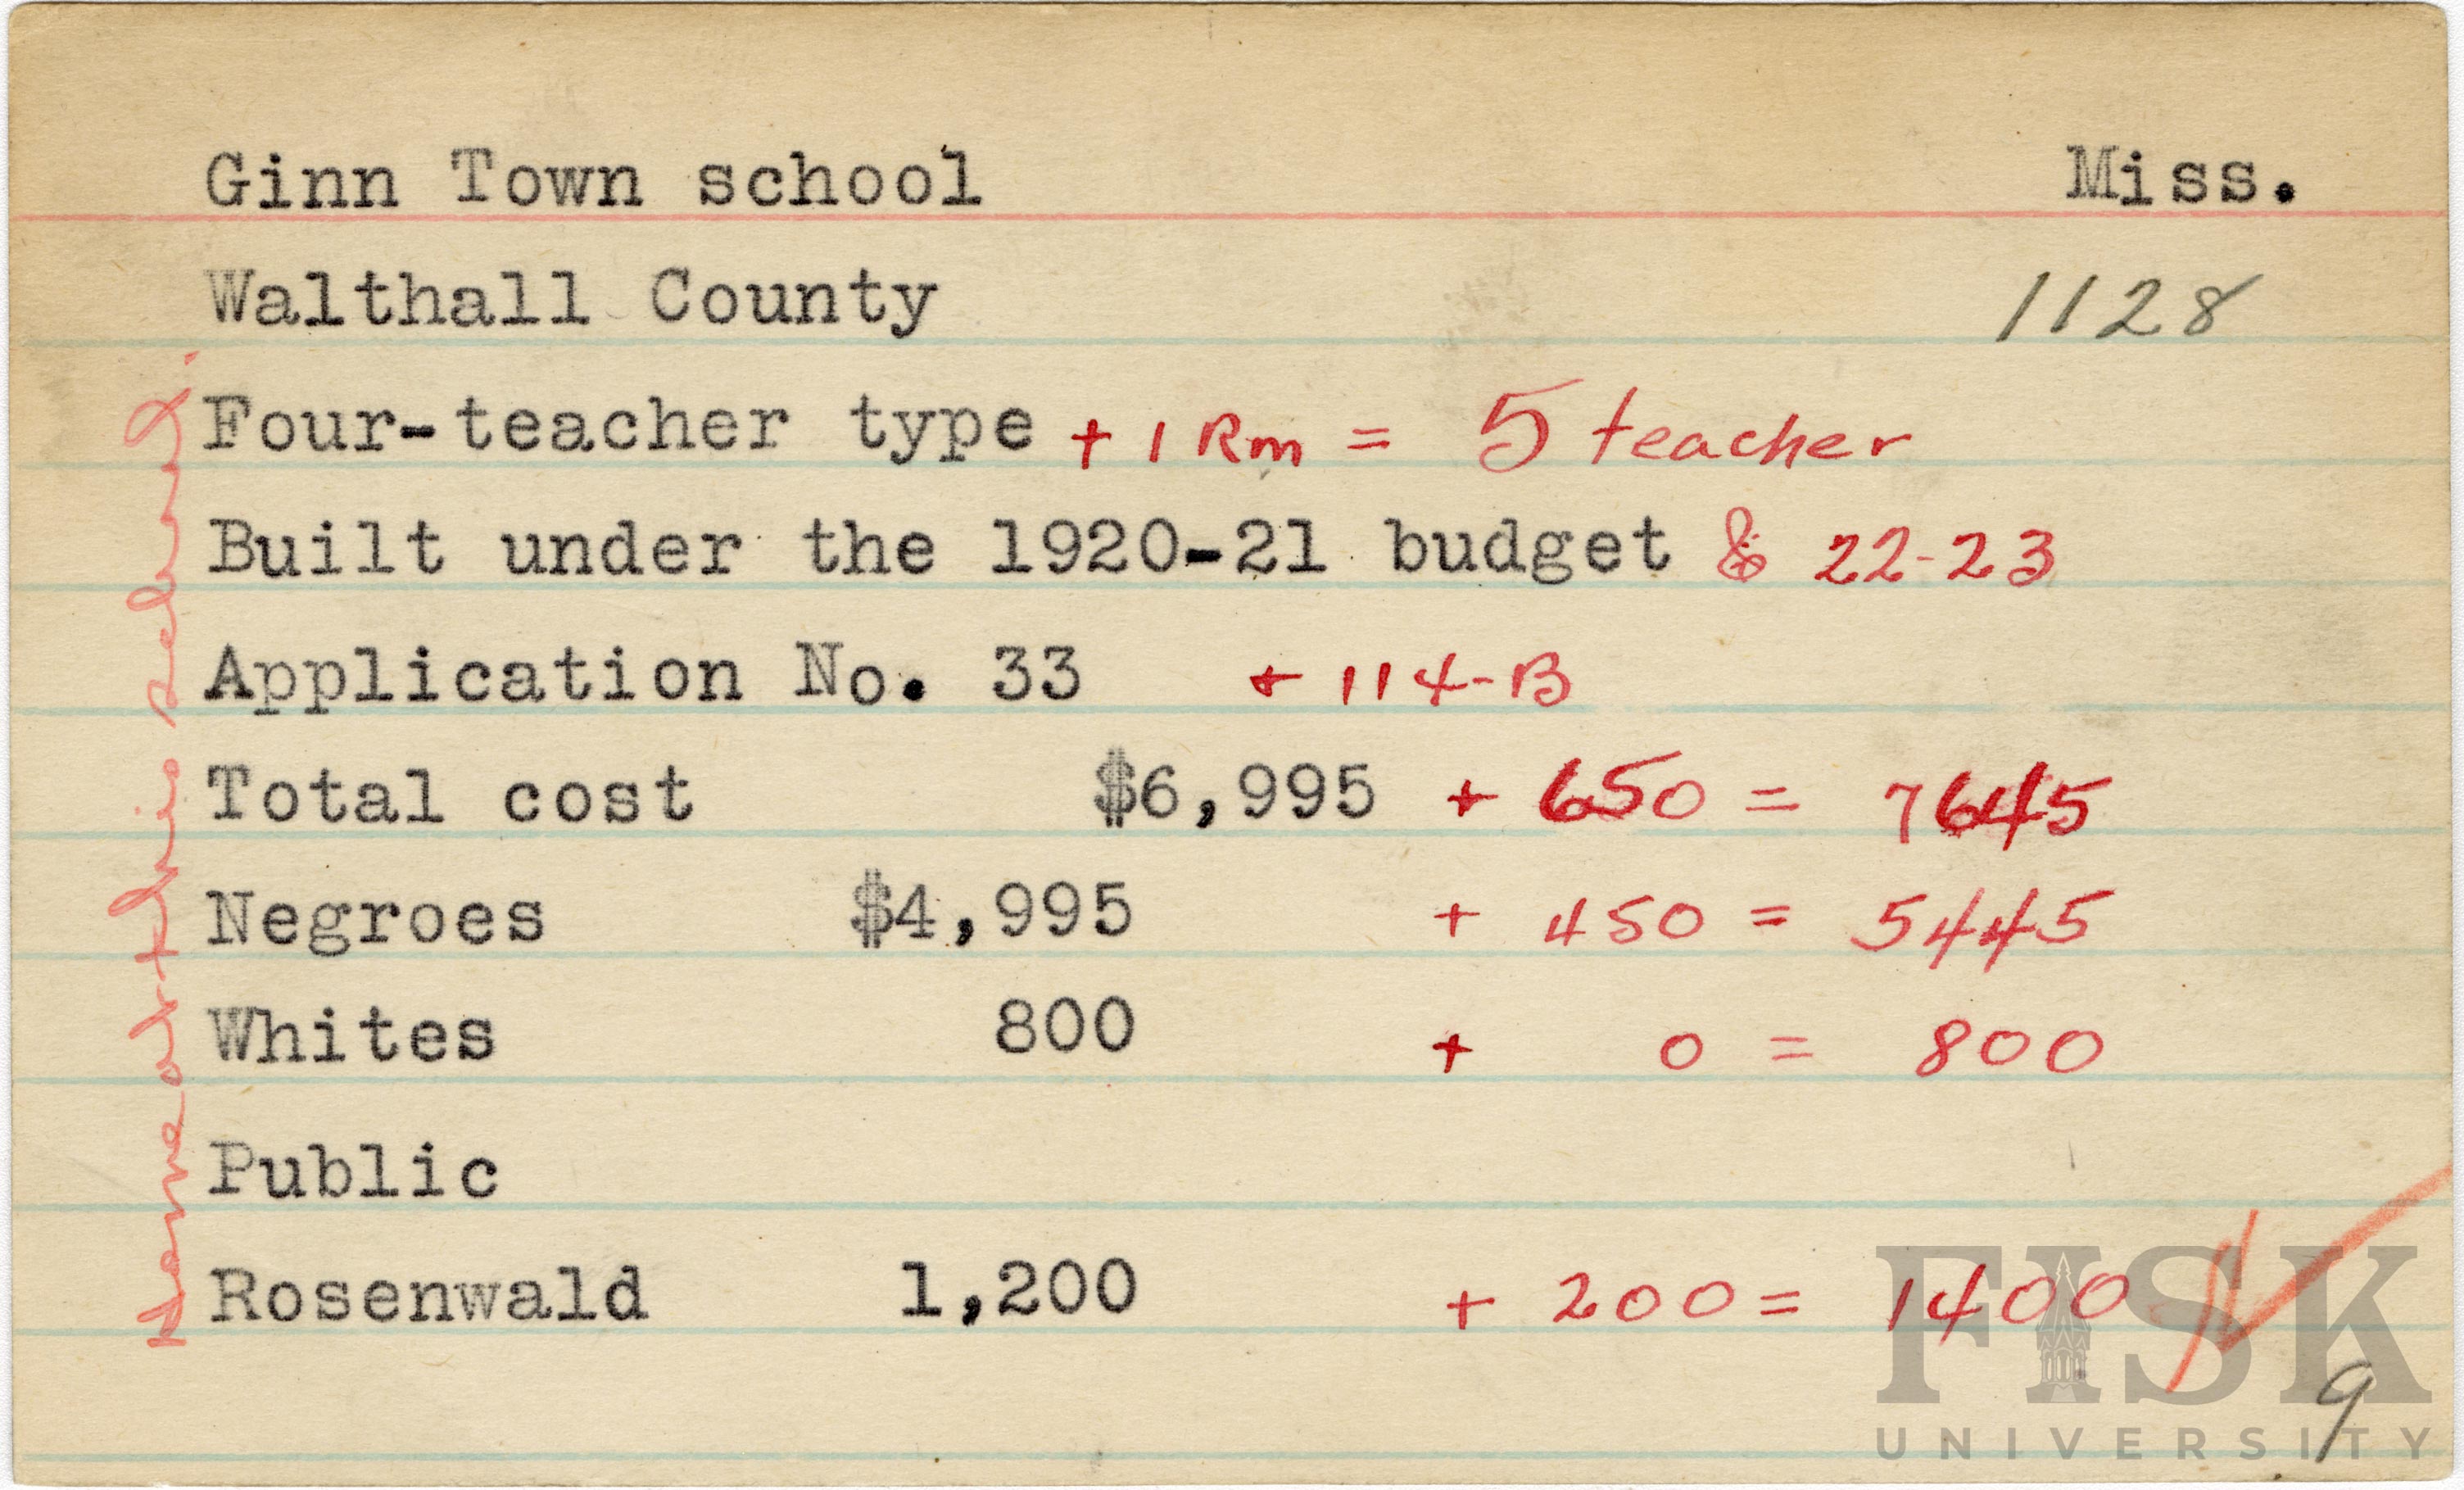 Ginn Town school Miss.
Walthall County 1128
Four-teacher type + 1 Rm = 5 teacher
Built under the 1920-21 budget & 22-23
Application No. 33 + 114-B
Total cost $6,995 + 650 = 7645
Negroes $4,995 + 450 = 5445
Whites 800 + 0 = 800
Public
Rosenwald 1,200 + 200 = 1400
9
Home at this school.
FISK
UNIVERSITY